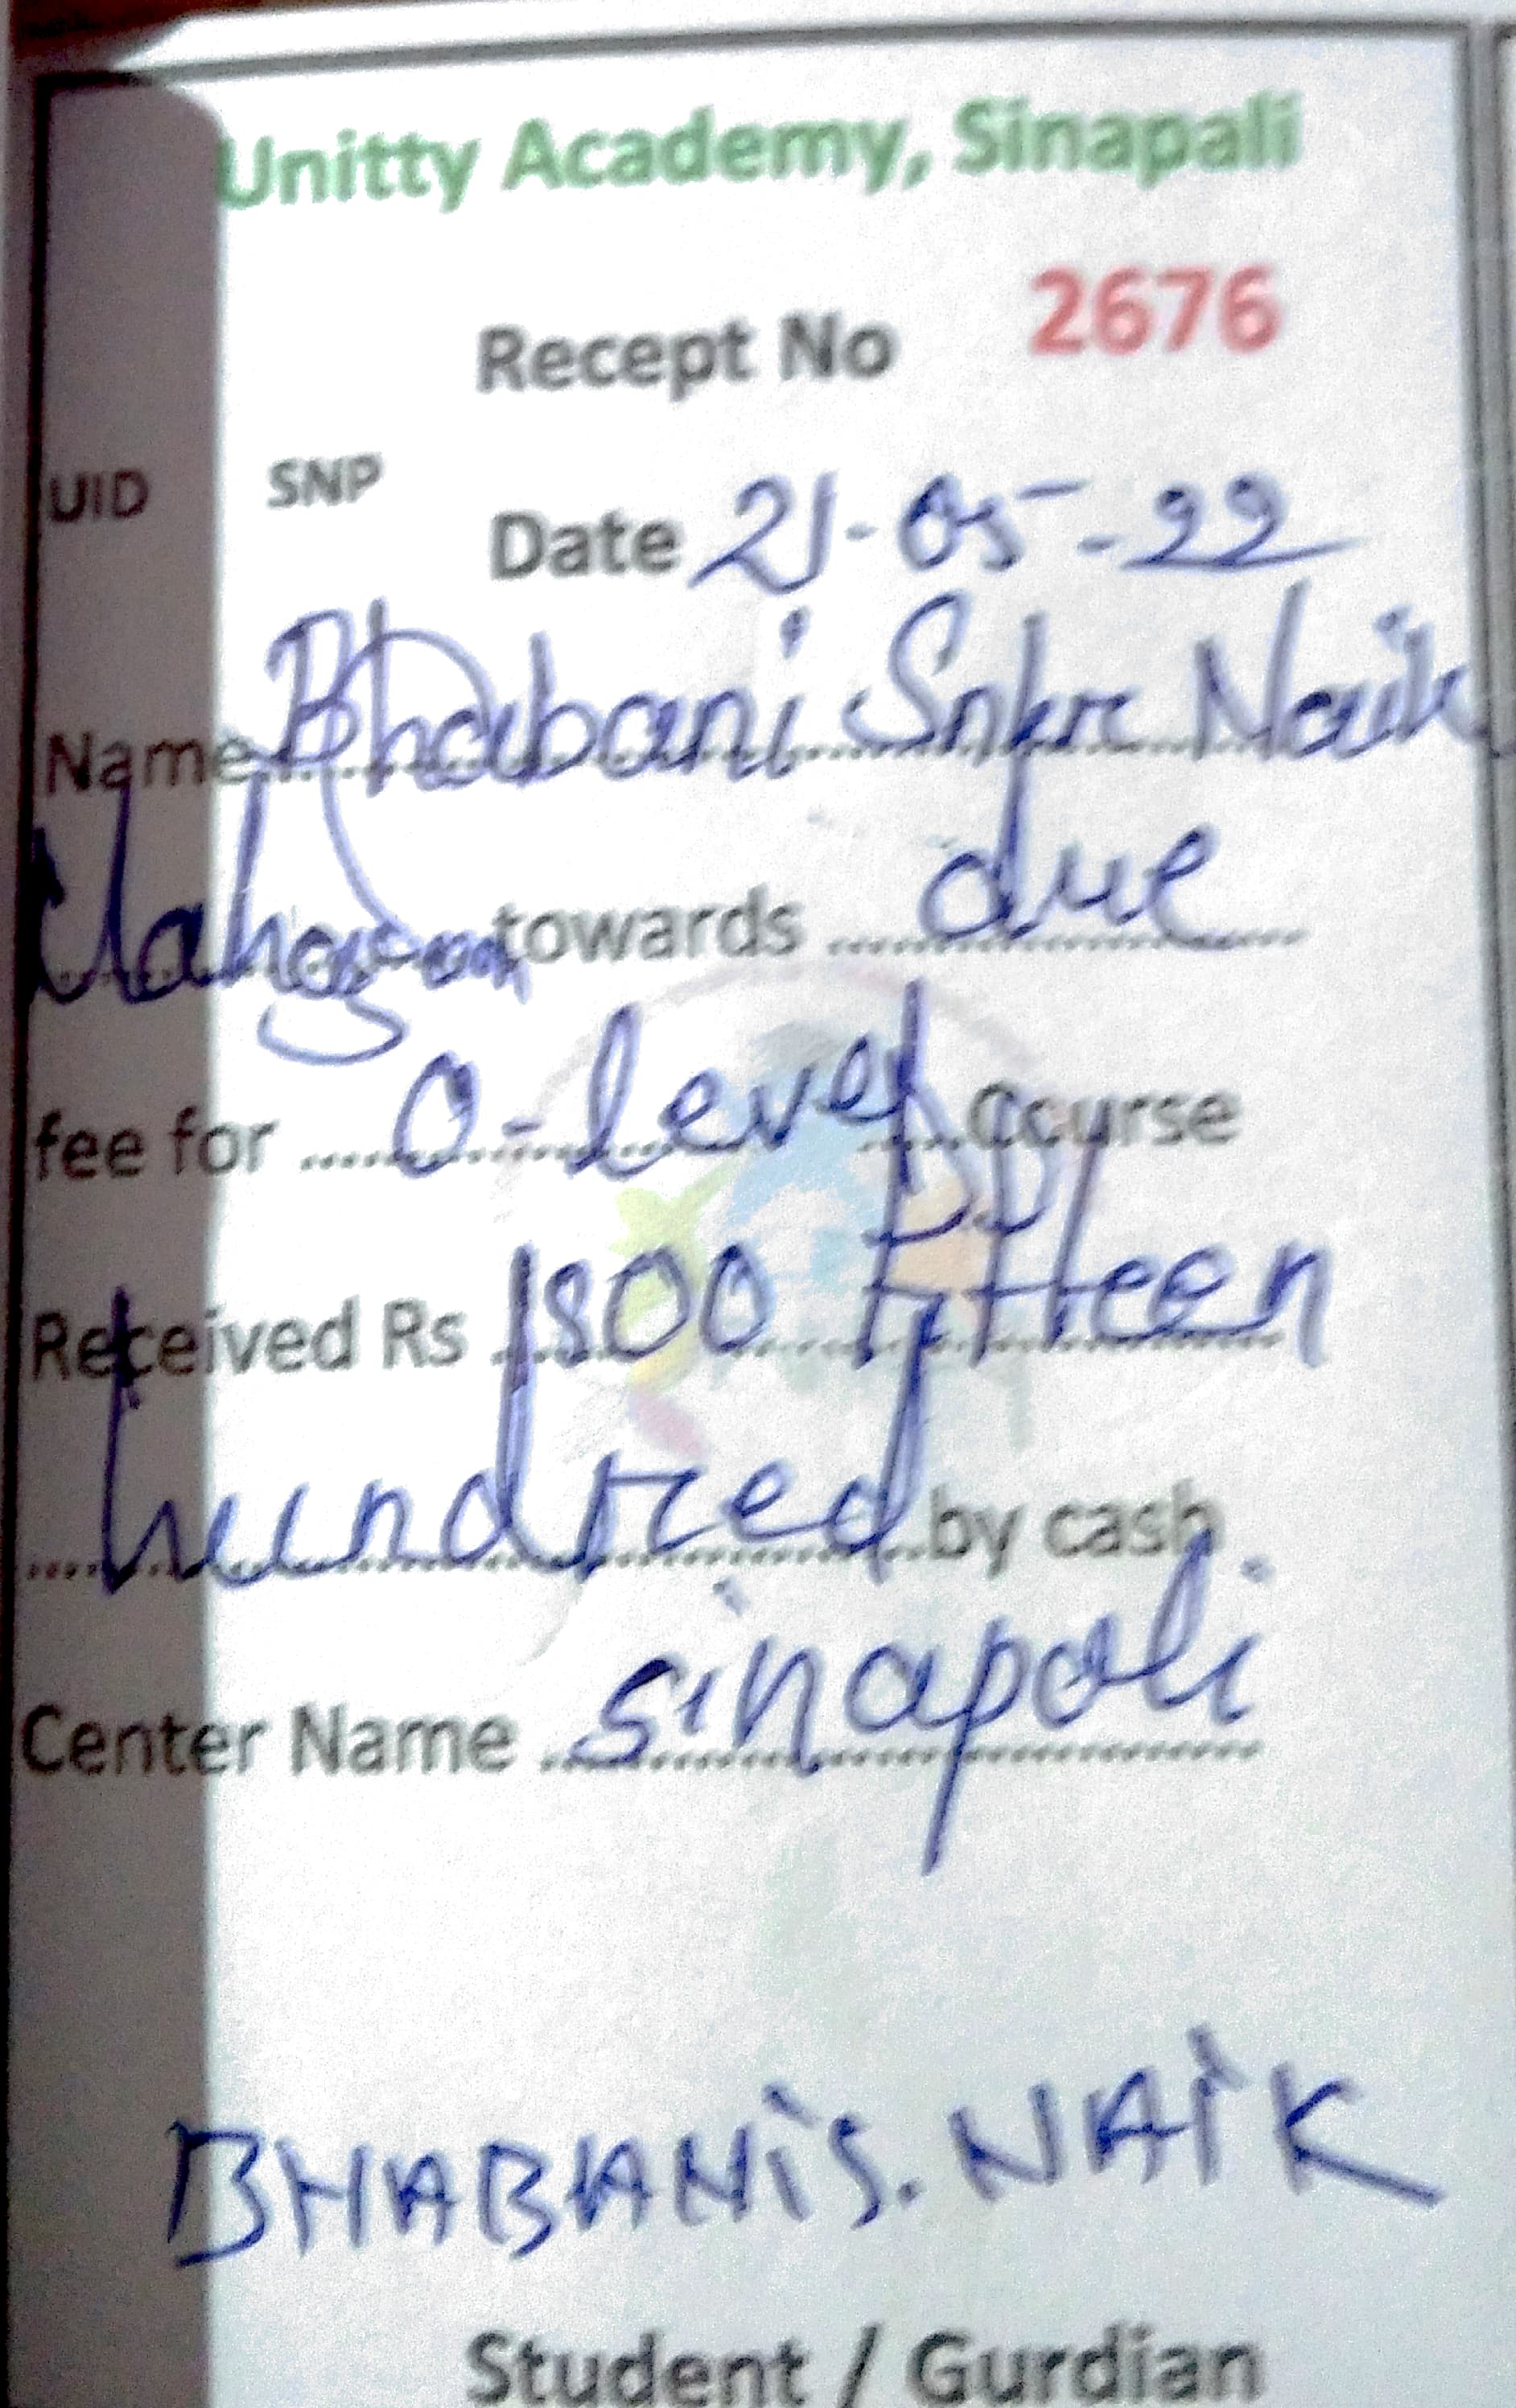 Unitty Academy, Sinapali
Recept No 2676
UID SNP
Date 21-05-22
Name Bhabani Snkr Naik
towards due
fee for O-level Course
Received Rs 1500 Fifteen
hundred by cash
Center Name sinapali
BHABANi S. NAiK
Student / Gurdian